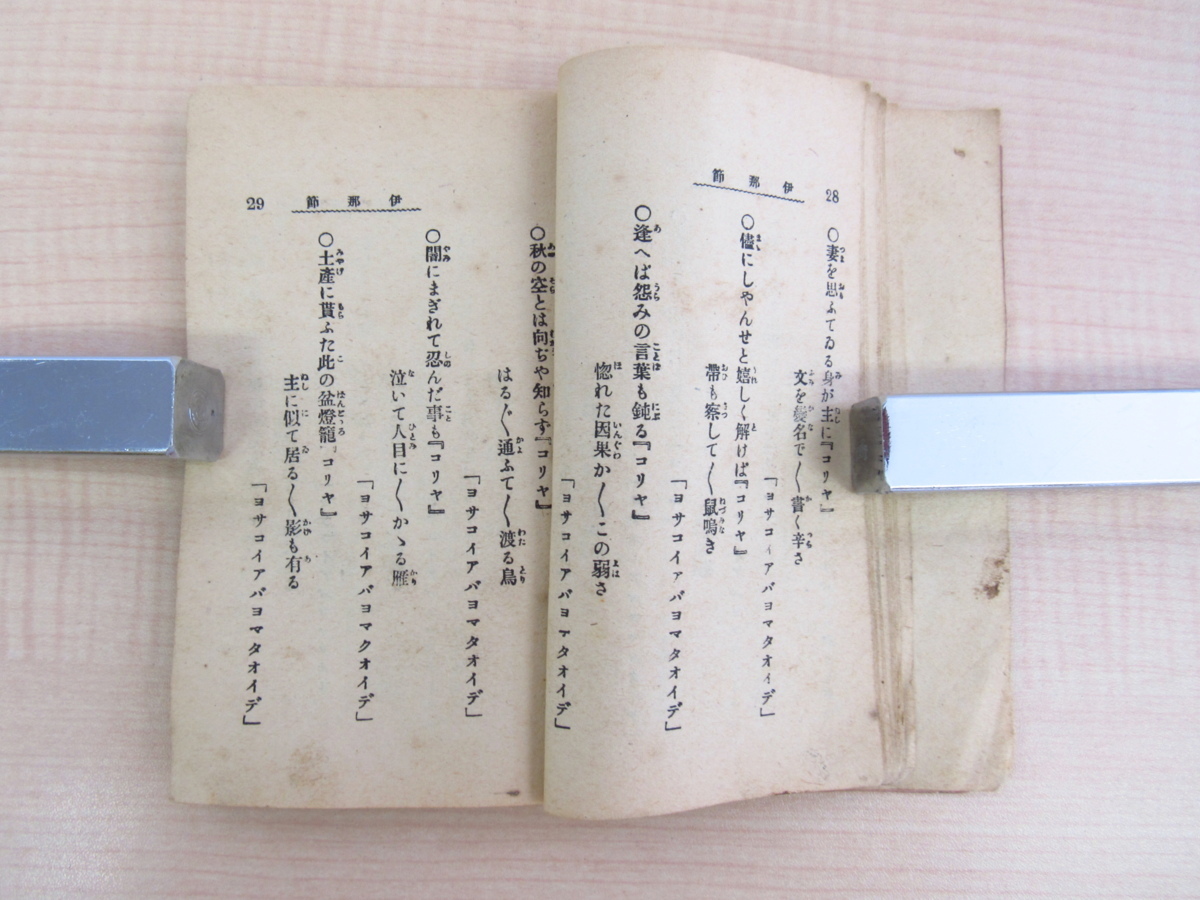 28
伊那節
〇妻を思ふてゐる身が主に『コリヤ』
文を髪名で〱書く辛さ
「ヨサコイアバヨマタオイデ」
〇儘にしやんせと嬉しく解けば『コリヤ』
帯も察して〱鼠鳴き
「ヨサコイアバヨマタオイデ」
〇逢へば怨みの言葉も鈍る『コリヤ』
惚れた因果か〱この弱さ
「ヨサコイアバヨマタオイデ」
伊那節
29
〇秋の空とは向ぢや知らず『コリヤ』
はる〲通ふて〱渡る鳥
「ヨサコイアバヨマタオイデ」
〇闇にまぎれて忍んだ事も『コリヤ』
泣いて人目に〱かゝる雁
「ヨサコイアバヨマクオイデ」
〇土産に貰ふた此の盆燈籠『コリヤ』
主に似て居る〱影も有る
「ヨサコイアバヨマタオイデ」